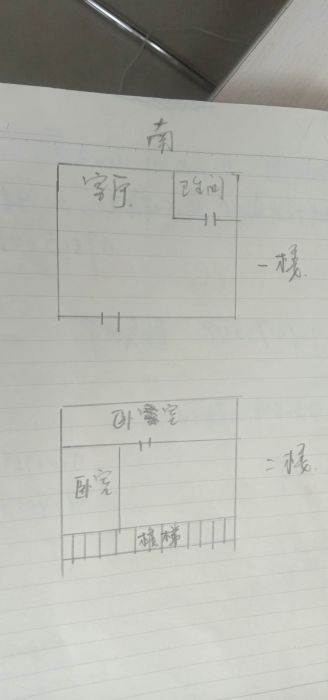 南
客厅 卫生间
一楼
卧室
卧室
二楼
楼梯